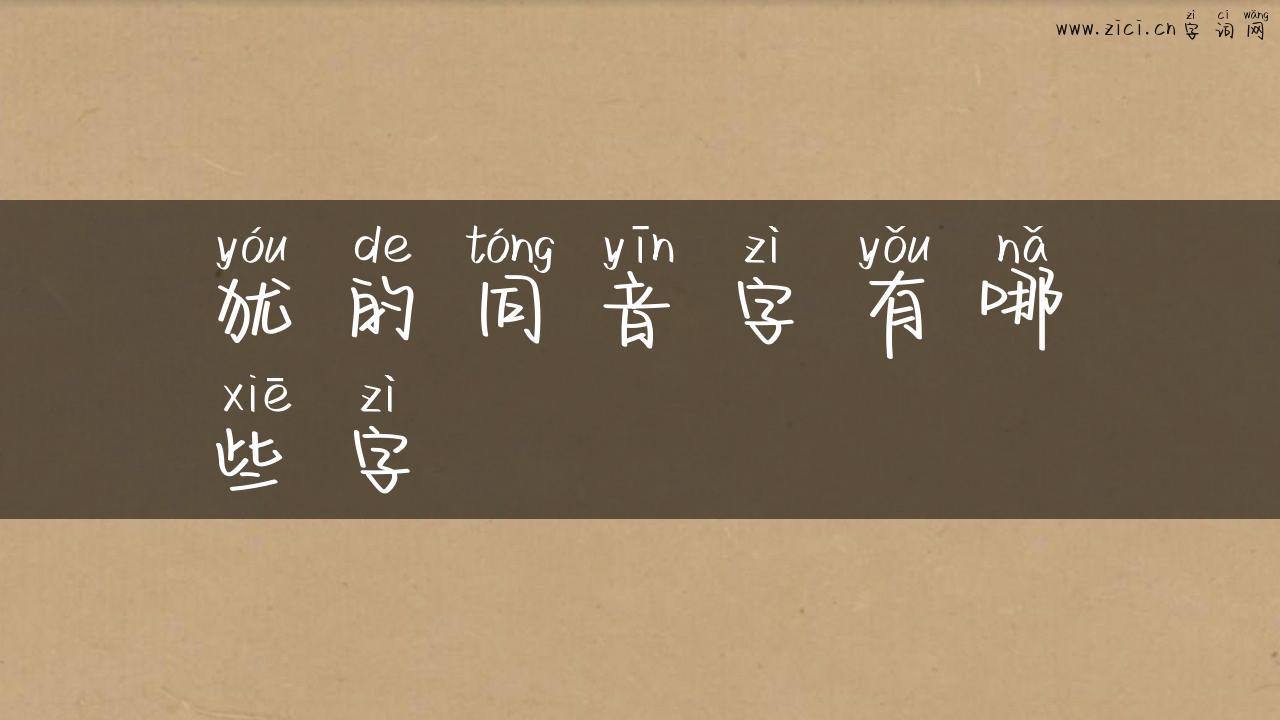 zì cí wǎng
www.zici.cn 字词网
yóu de tóng yīn zì yǒu nǎ
犹的同音字有哪
xiē zì
些字